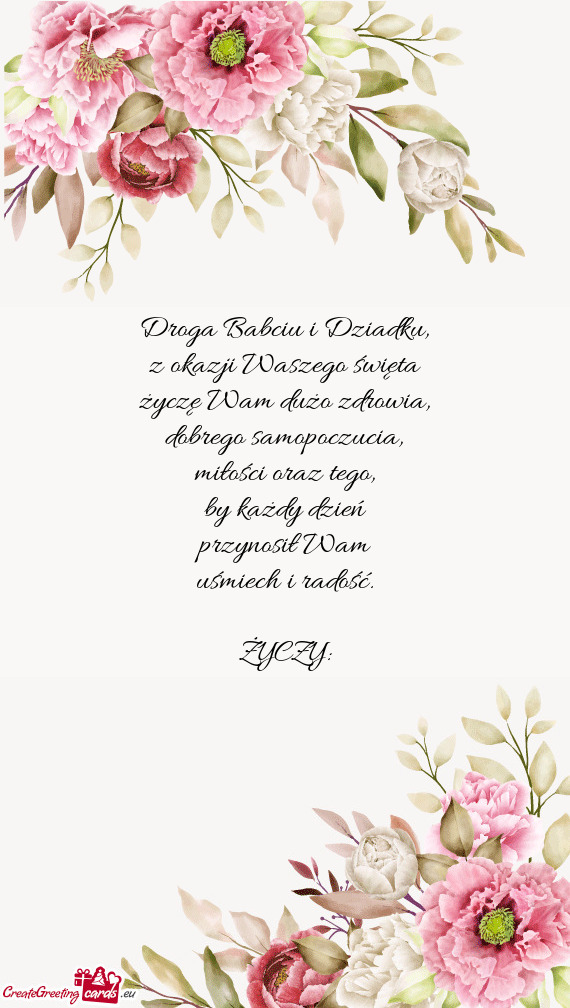 Droga Babciu i Dziadku,
z okazji Waszego święta
życzę Wam dużo zdrowia,
dobrego samopoczucia,
miłości oraz tego,
by każdy dzień
przynosił Wam
uśmiech i radość.
ŻYCZY:
CreateGreeting cards .eu